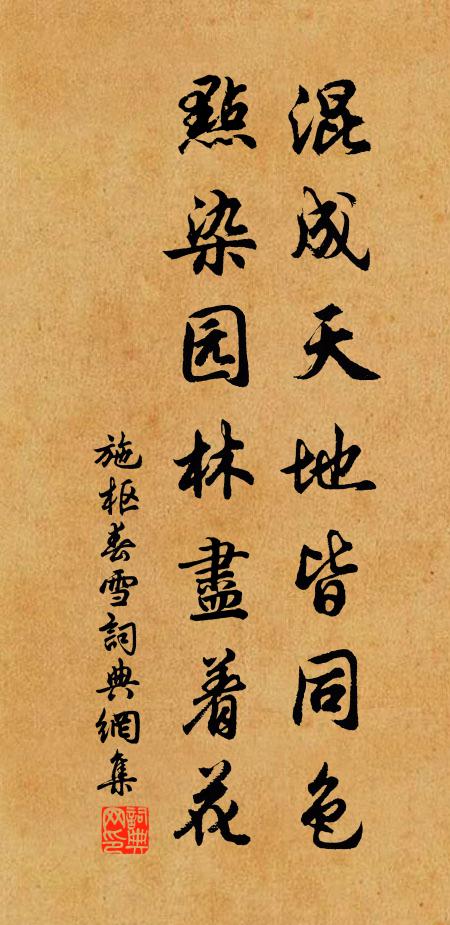 混成天地皆同色
點染园林盡着花
施枢春雪詞典網集
詞典网印